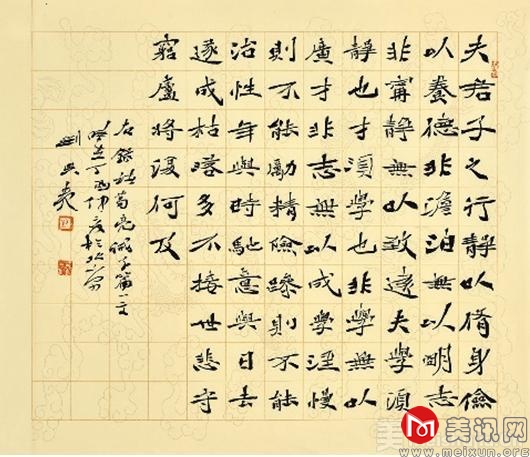 夫君子之行靜以脩身儉
以養德非澹泊無以明志
非寧靜無以致遠夫學須
靜也才須學也非學無以
廣才非志無以成學淫慢
則不能勵精險躁則不能
治性年與時馳意與日去
遂成枯落多不接世悲守
窮廬將復何及
右錄諸葛亮誡子篇一文
時在丁酉仲夏於北京
美讯网
www.meixun.org